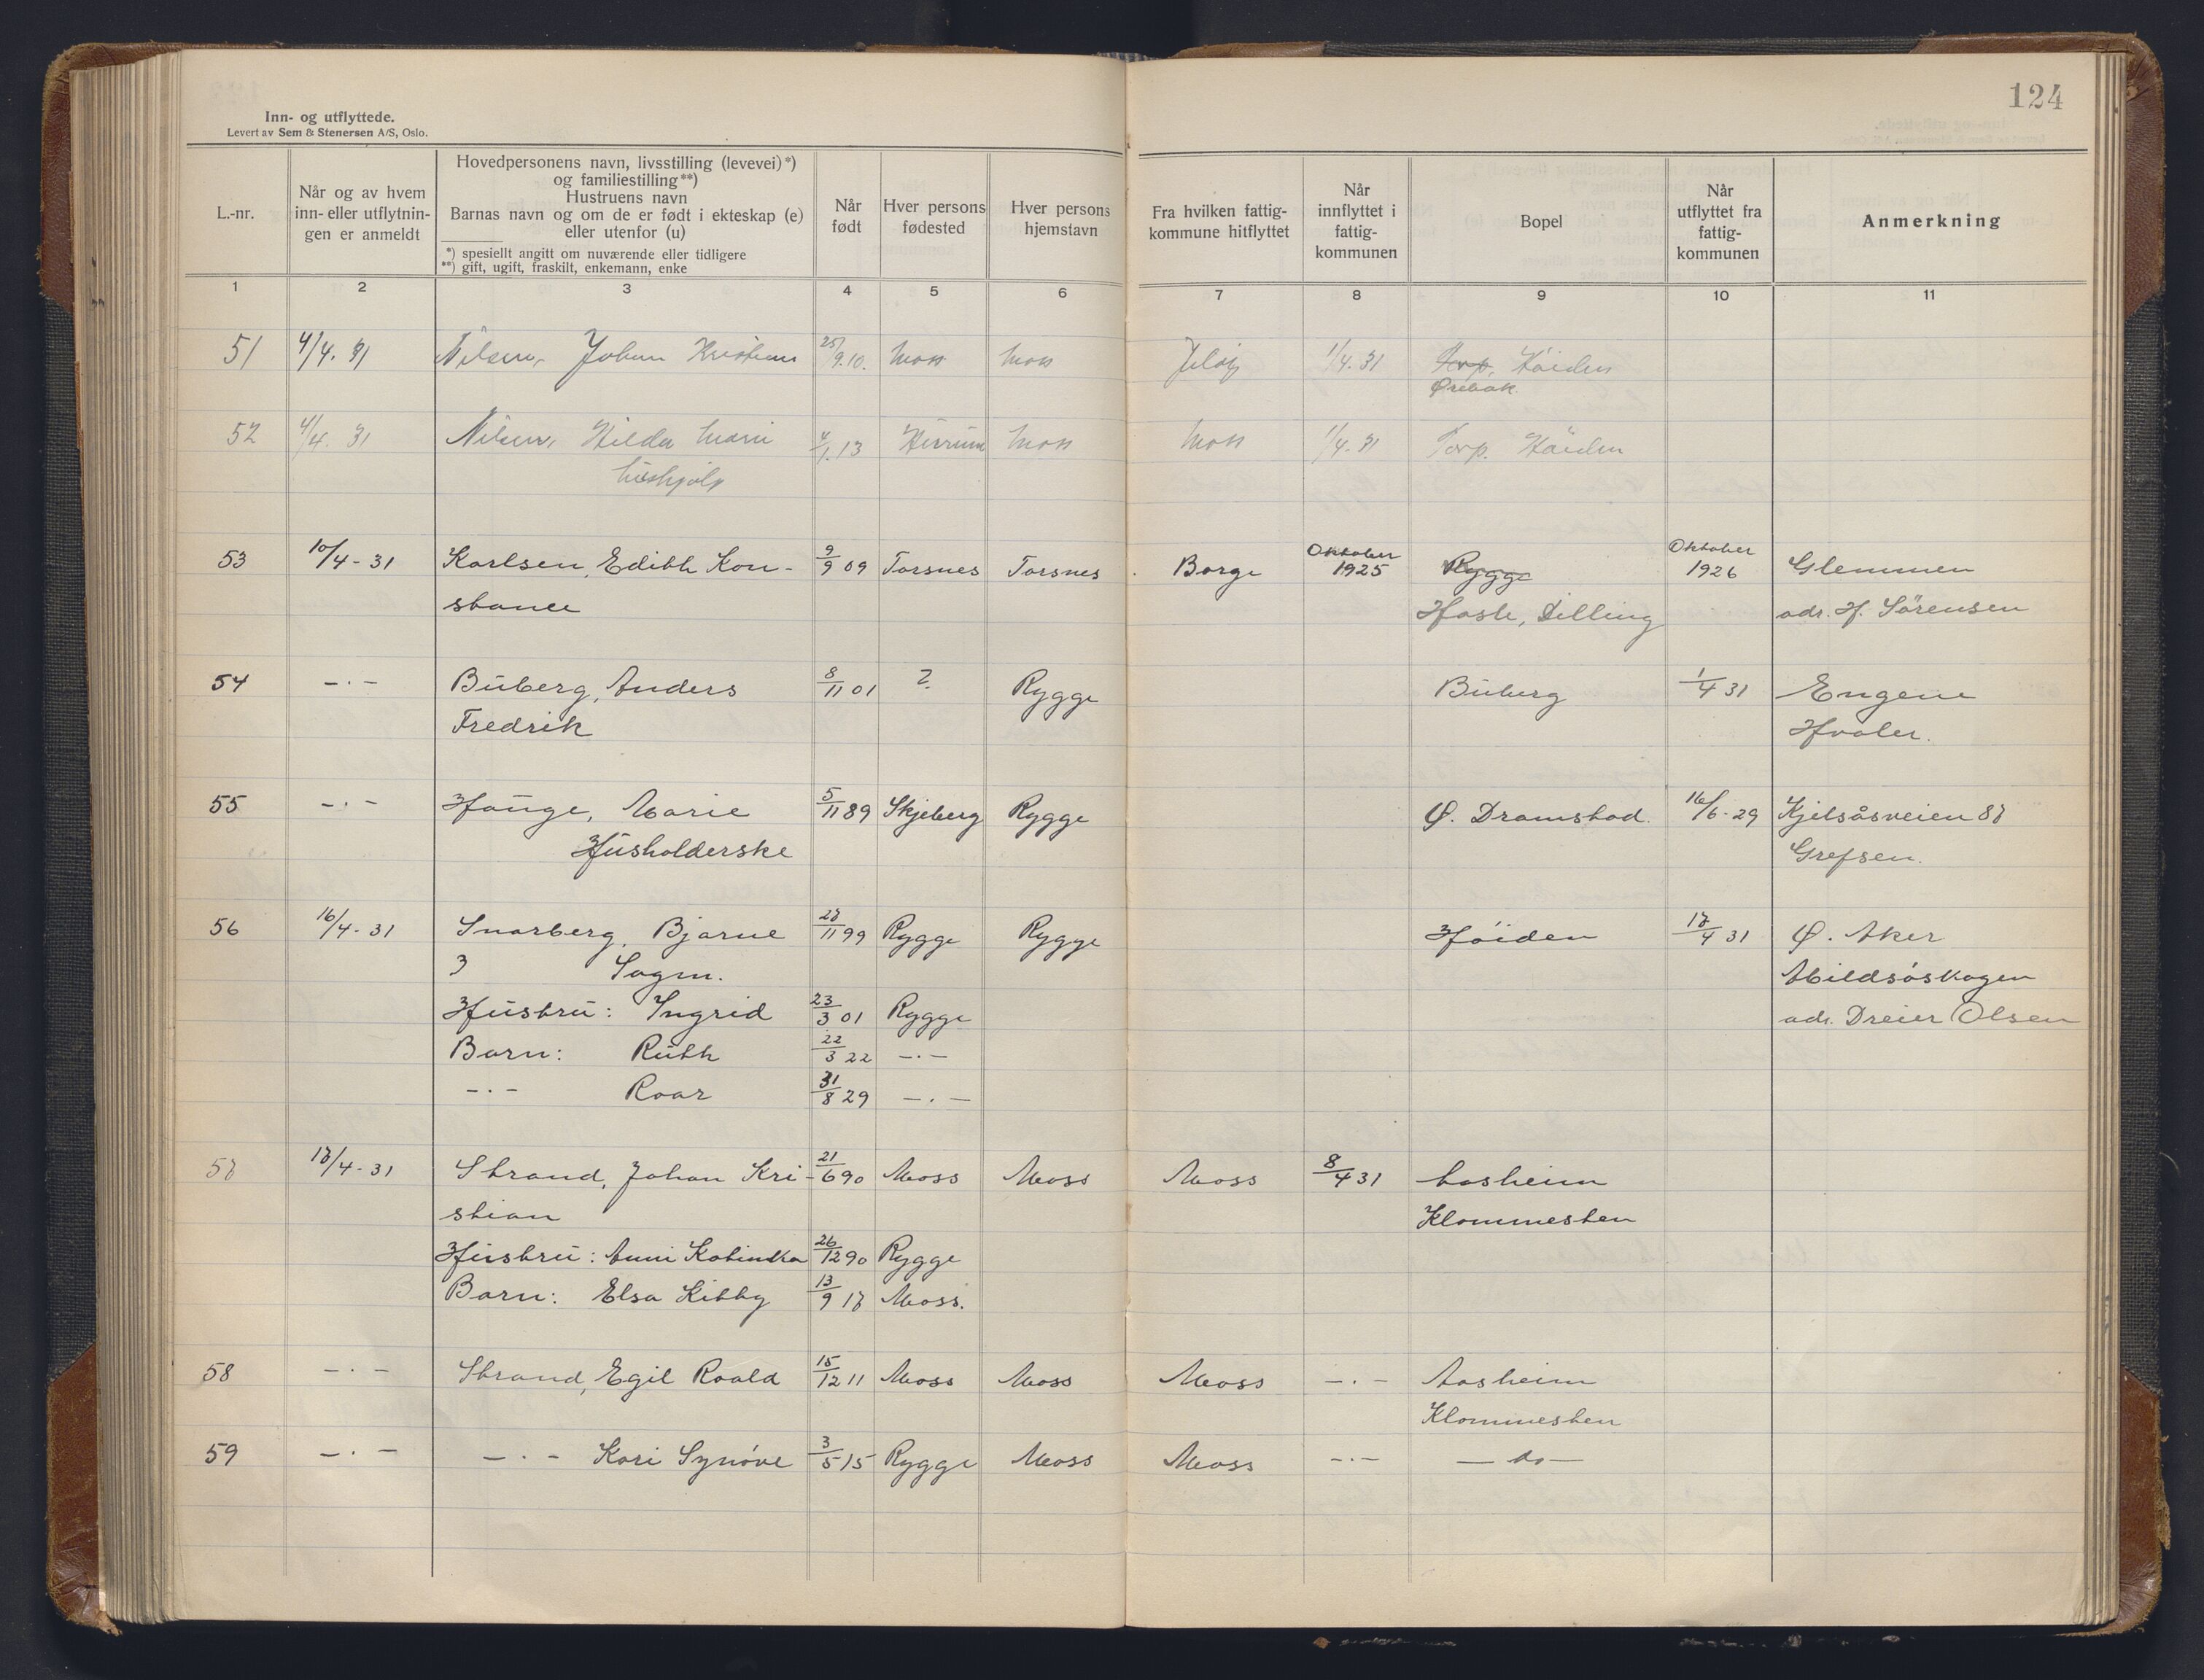 124
Inn- og utflyttede.
Levert av Sem & Stenersen A/S, Oslo.
L.-nr.
Når og av hvem inn- eller utflytnin-gen er anmeldt
Hovedpersonens navn, livsstilling (levevei)*)
og familiestilling**)
Hustruens navn
Barnas navn og om de er født i ekteskap (e)
eller utenfor (u)
*) spesielt angitt om nuværende eller tidligere
**) gift, ugift, fraskilt, enkemann, enke
Når født
Hver persons fødested
Hver persons hjemstavn
Fra hvilken fattig-kommune hitflyttet
Når innflyttet i fattig-kommunen
Bopel
Når utflyttet fra fattig-kommunen
Anmerkning
1 2 3 4 5 6 7 8 9 10 11
51 4/4. 31 Nilsen, Johan Kristian 25/9.10. Moss Moss Jeløy 1/4. 31 Torp, Høiden
Ørebæk
52 4/4. 31 Nilsen, Hilda Marie 4/1.13 Moss Moss 1/4. 31 Torp. Høiden
hushjelp
53 10/4-31 Karlsen, Edith Kon- 9/9 09 Torsnes Torsnes Borge Oktober 1925 Rygge Oktober 1926 Glemmen
stance Hasle, Dilling adr. H. Sörensen
54 -·- Buberg, Anders 8/11 01 ? Rygge Buberg 1/4 31 Engene
Fredrik Hvaler.
55 -·- Hauge, Marie 5/11 89 Skjeberg Rygge Ø. Dramstad. 16/6-29 Kjelsåsveien 87
Husholderske Grefsen.
56 16/4-31 Snarberg, Bjarne 27/11 99 Rygge Rygge Høiden 17/4 31 Ø. Aker
Sagm. Abildsøskogen
Hustru: Ingrid 23/3 01 Rygge adr. Dreier Olsen
Barn: Ruth 22/3 22 -·-
-·- Roar 31/8 29 -·-
57 17/4-31 Strand, Johan Kri- 21/6 90 Moss Moss Moss 8/4 31 Aasheim
stian Klommesten
Hustru: Anni Katinka 26/12 90 Rygge
Barn: Elsa Kitty 13/9 17 Moss.
58 -·- Strand, Egil Roald 15/12 11 Moss Moss Moss -·- Aasheim
Klommesten
59 -·- -·- Kari Synøve 3/5 15 Rygge Moss Moss -·- - do -